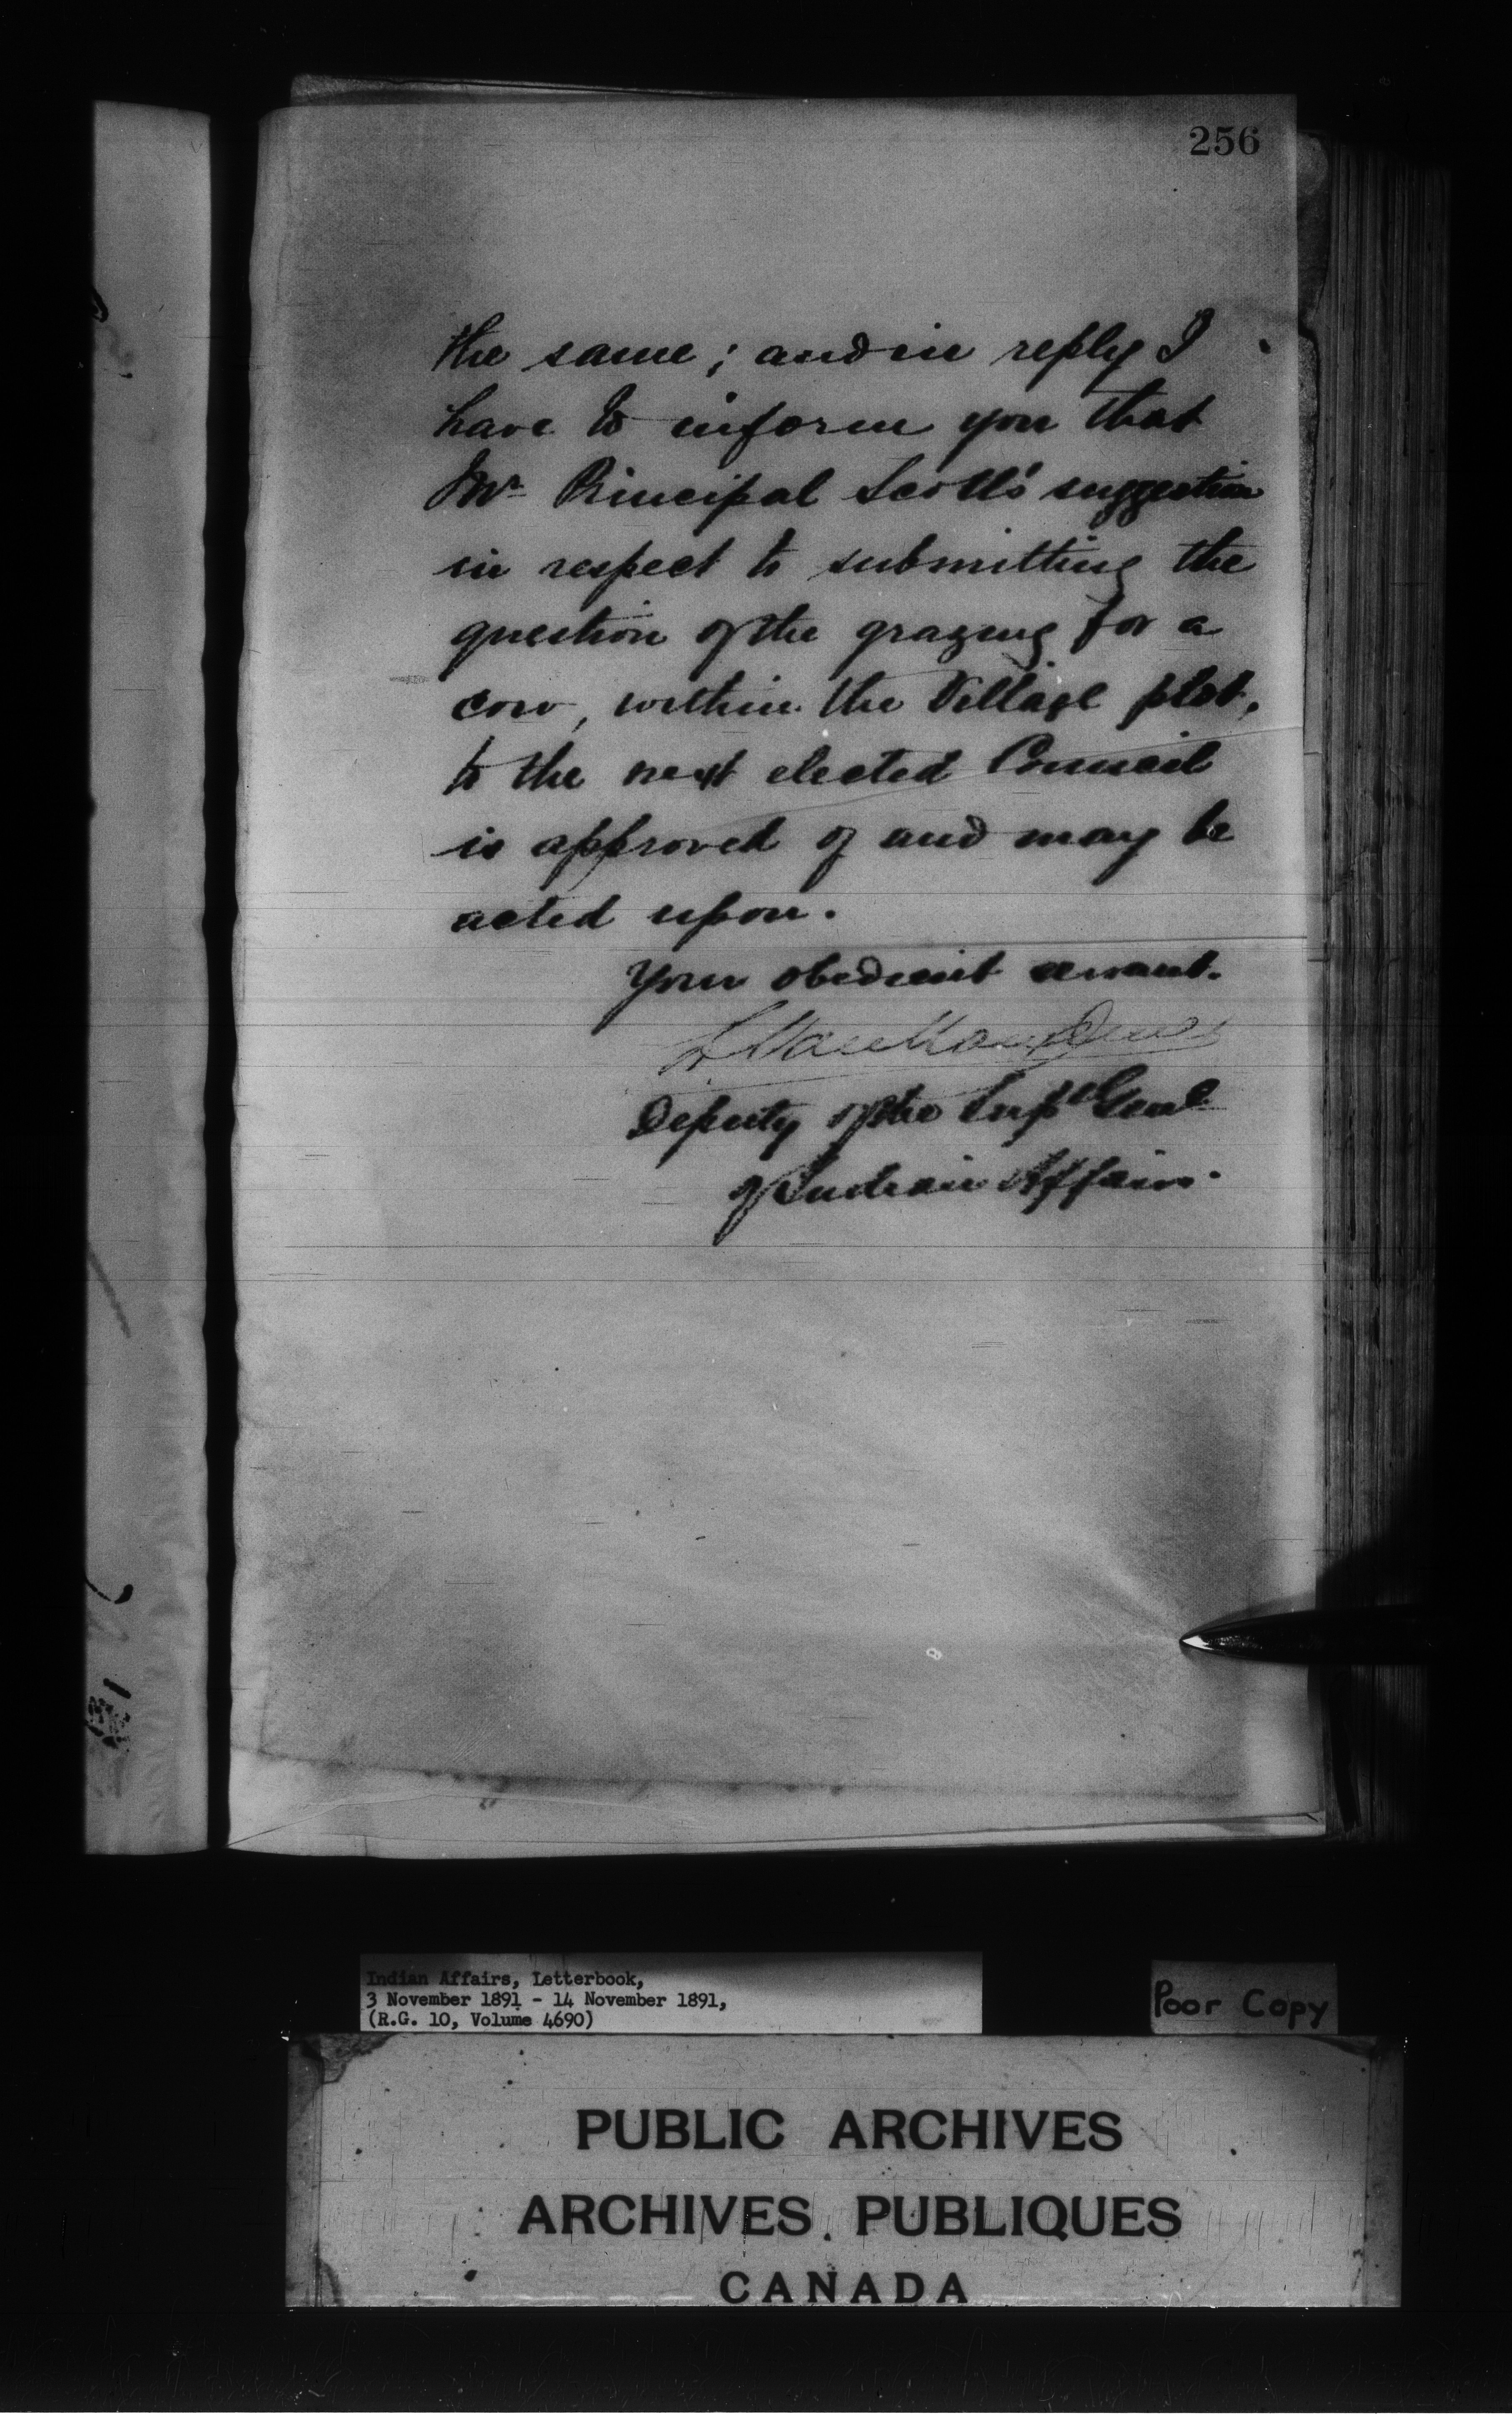 256
the same; and in reply I
have to inform you that
Mr. Principal Scott's suggestion
in respect to submitting the
question of the grazing for a
cow, within the Village plot,
to the next elected Council
is approved of and may be
acted upon.
Your obedient servant.
L Vankoughnet
Deputy of the Supt Genl
of Indian Affairs.
Indian Affairs, Letterbook,
3 November 1891 - 14 November 1891,
(R.G. 10, Volume 4690)
Poor Copy
PUBLIC ARCHIVES
ARCHIVES PUBLIQUES
CANADA